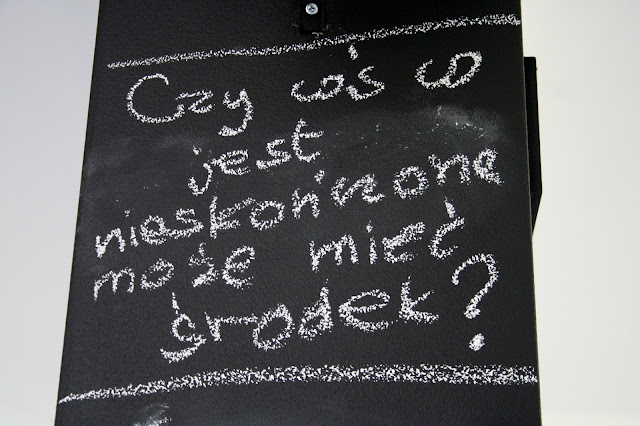 Czy coś co
jest
nieskończone
może mieć
środek?